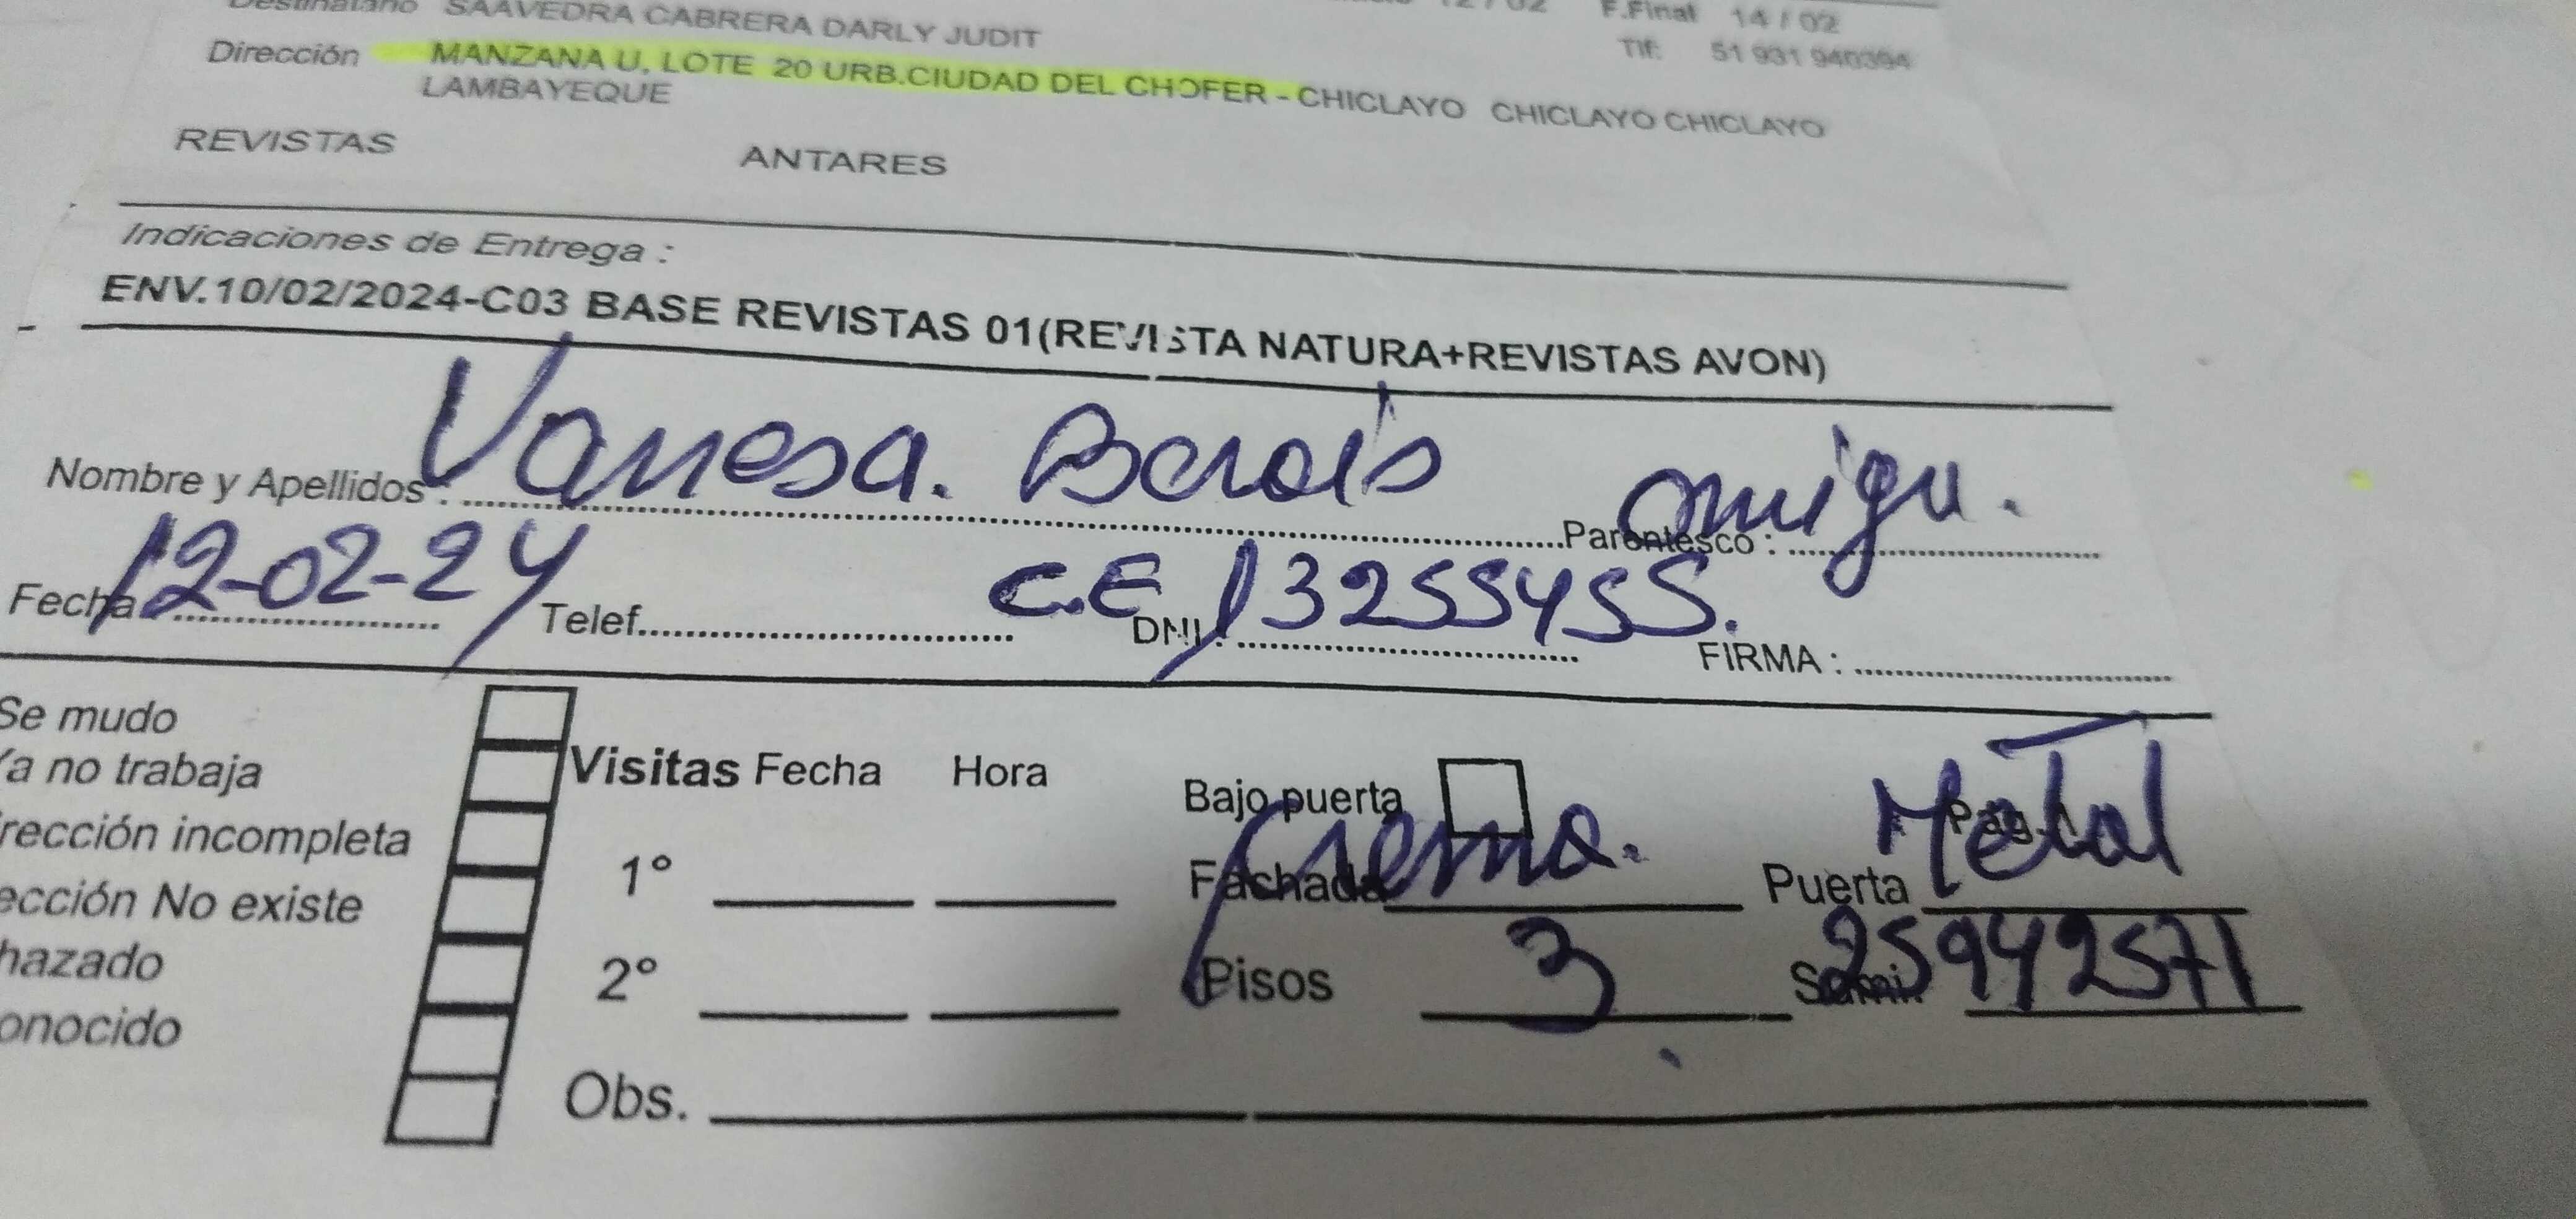 Destinatario SAAVEDRA CABRERA DARLY JUDIT 12 / 02 F.Final 14 / 02
Dirección MANZANA U, LOTE 20 URB.CIUDAD DEL CHOFER - CHICLAYO CHICLAYO CHICLAYO Tlf: 51 931 940394
LAMBAYEQUE
REVISTAS ANTARES
Indicaciones de Entrega :
ENV.10/02/2024-C03 BASE REVISTAS 01(REVISTA NATURA+REVISTAS AVON)
Nombre y Apellidos : Vanesa. Parentesco : amiga.
Fecha 12-02-24 Telef. C.E DNI : 13255455. FIRMA :
Se mudo
Ya no trabaja Visitas Fecha Hora Bajo puerta
rección incompleta 1° Fachada Crema. Puerta Metal
ección No existe
hazado 2° Pisos 3 Sumi. 25942571
onocido
Obs.